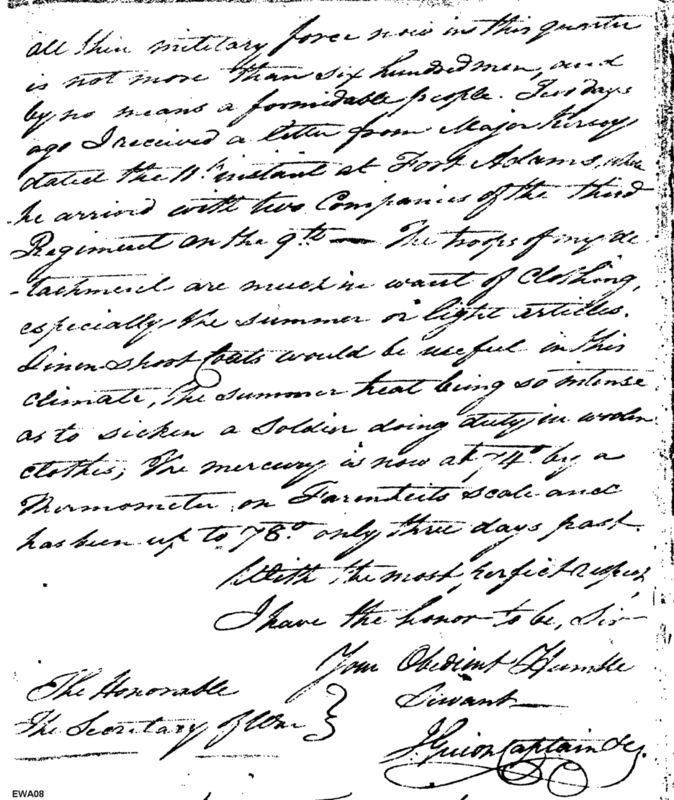 all their military force now in this quarter
is not more than six hundred men, and
by no means a formidable people. Two days
ago I received a letter from Major Kersey
dated the 11th instant at Fort Adams, where
he arrived with two Companies of the third
Regiment on the 9th — The troops of my de
-tachment are much in want of Clothing,
especially the summer or light articles.
Linen short Coats would be useful in this
climate, the summer heat being so intense
as to sicken a Soldier doing duty in woolen
clothes; the mercury is now at 74° by a
Thermometer on Farenheits scale and
has been up to 78° only three days past.
With the most perfect respect
I have the honor to be, Sir
Your Obedient Humble
Servant
The Honorable
The Secretary of War
I. Guion Captain &c.
EWA08